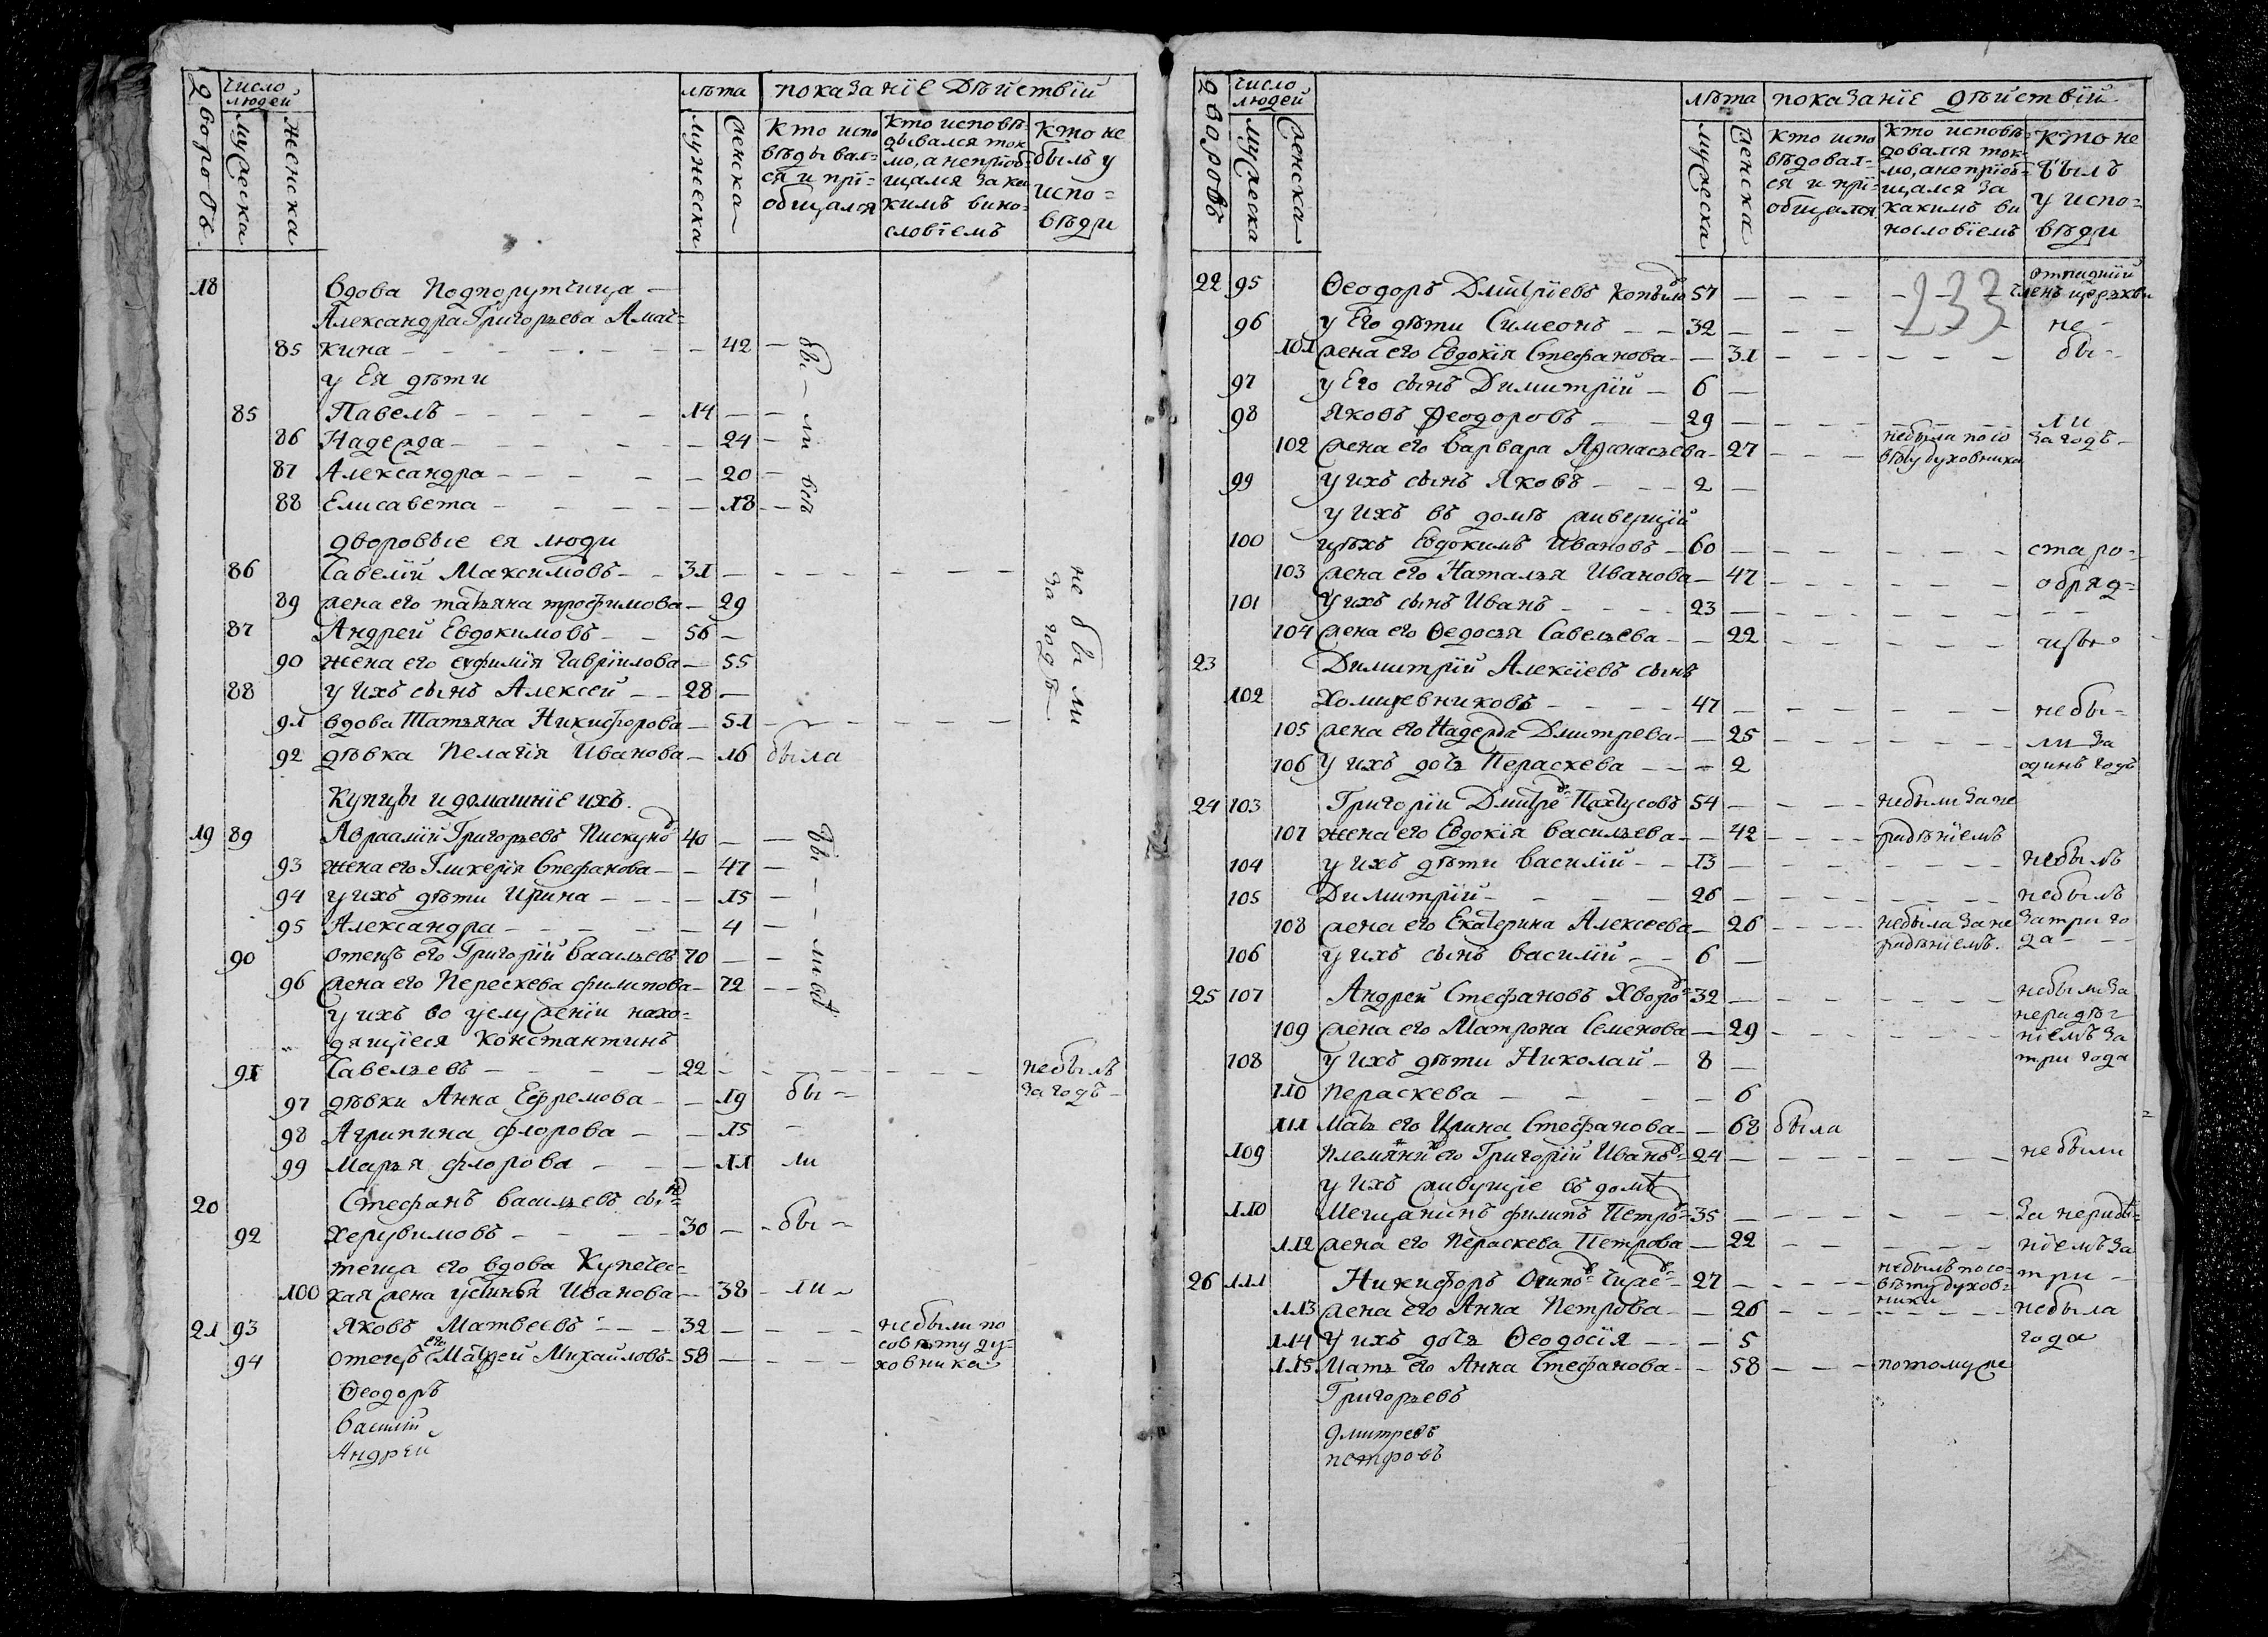 дворовъ
число людей
мужеска
женска
лѣта
мужеска
женска
показанїе дѣйствїй
кто испо
вѣдывал=
ся и прї=
общался
кто исповѣ=
дывался ток
мо, а непрїоб=
щался за ка
кимъ вино=
словїемъ
кто не
былъ у
испо=
вѣди
18 вдова Подпорутчица —
Александра Григорьева Амач=
85 кина — 42 — бы —
у Ея дѣти
85 Павелъ — 14 —
86 Надежда — 24 — ли
87 Александра — 20 —
88 Елисавета — 18 — всѣ
дворовые ея люди
86 Савелїй Максимовъ — 31 —
89 жена его татьяна трофимова — 29
87 Андрей Евдокимовъ — 56 —
90 жена его ефимїя Гаврїилова — 55
88 у ихъ сынъ Алексей — 28 —
91 вдова Татьяна Никифорова — 51 —
не были
за годъ —
92 дѣвка Пелагїя Иванова — 16 была
Купцы и домашнїе ихъ.
19 89 Авраамїй Григорьевъ Пискуновъ 40 — бы —
93 жена его Гликерїя Стефанова — 47 —
94 у ихъ дѣти Ирина — 15 —
95 Александра — 4 —
90 отецъ его Григорїй Васильевъ 70 —
96 жена его Перескева филипова — 72 —
у ихъ во услуженїи нахо=
дящїеся Константинъ
91 Савельевъ — 22 — небылъ
за годъ —
97 дѣвки Анна Ефремова — 19 бы =
98 Агрипина флорова — 15 —
99 Марья флорова — 11 ли
20 Стефанъ Васильевъ сынъ
92 Херувимовъ — 30 — бы =
теща его вдова Купечес=
100 кая жена устинья Иванова — 38 — ли —
21 93 Яковъ Матвеевъ — 32 — небыли по
94 отецъ его Матфей Михайловъ — 58 — совѣту ду=
ховника
Ѳеодоръ
Василїй
Андрей
дворовъ
число людей
мужеска
женска
лѣта
мужеска
женска
показанїе дѣйствїй
кто испо
вѣдовал=
ся и прї=
общался
кто исповѣ=
довался ток=
мо, а непрїоб=
щался за
какимъ ви
нословїемъ
кто не
былъ
у испо=
вѣди
233
22 95 Ѳеодоръ Дмитрїевъ Копыловъ 57 — отпадшїй
членъ церькви
96 у Его дѣти Симеонъ — 32 — не —
101 жена его Евдокїя Стефанова — 31 — бы =
97 у Его сынъ Димитрїй — 6 —
98 Яковъ Ѳеодоровъ — 29 — ли
102 жена его Варвара Афанасьева — 27 — небыла по со
вѣту духовника за годъ —
99 у ихъ сынъ Яковъ — 2 —
у ихъ въ домѣ живущїй
100 цѣхъ Евдокимъ Ивановъ — 60 — старо=
103 жена его Наталья Иванова — 47 — обряд=
101 у ихъ сынъ Иванъ — 23 —
104 жена его Ѳедосья Савельева — 22 —
23 Димитрїй Алексїевъ сынъ
102 47 — небы=
105 жена его Надежда Дмитрева — 25 — ли за
106 у ихъ дочь Пераскева — 2 одинъ годъ
24 103 Григорїи Дмитревъ Пахтусовъ 54 — небыли за не
107 жена его Евдокїя Васильева — 42 — ридѣнїемъ
104 у ихъ дѣти Василїй — 13 — небылъ
105 Димитрїй — 26 — небылъ
108 жена его Екатерина Алексеева — 26 — небыла за не
ридѣнїемъ. за три го
да —
106 у ихъ сынъ Василїй — 6 —
25 107 Андрей Стефановъ 32 — небыли за
неридѣ=
109 жена его Матрона Семенова — 29 — нїемъ за
108 у ихъ дѣти Николай — 8 — три года
110 Пераскева — 6
111 Мать его Ирина Стефанова — 68 была
109 племянникъ его Григорїй Ивановъ 24 — небыли
у ихъ живущїе въ домѣ
110 Мещанинъ филипъ Петровъ 35 — за неридѣ=
112 жена его Пераскева Петрова — 22 — нїемъ за
26 111 Никифоръ Осиповъ 27 — небылъ по со=
вѣту духов=
ника три —
113 жена его Анна Петрова — 26 — небыла
114 у ихъ дочь Ѳеодосїя — 5 года
115 Мать его Анна Стефанова — 58 — потому же
Григорьевъ
Дмитревъ
петровъ